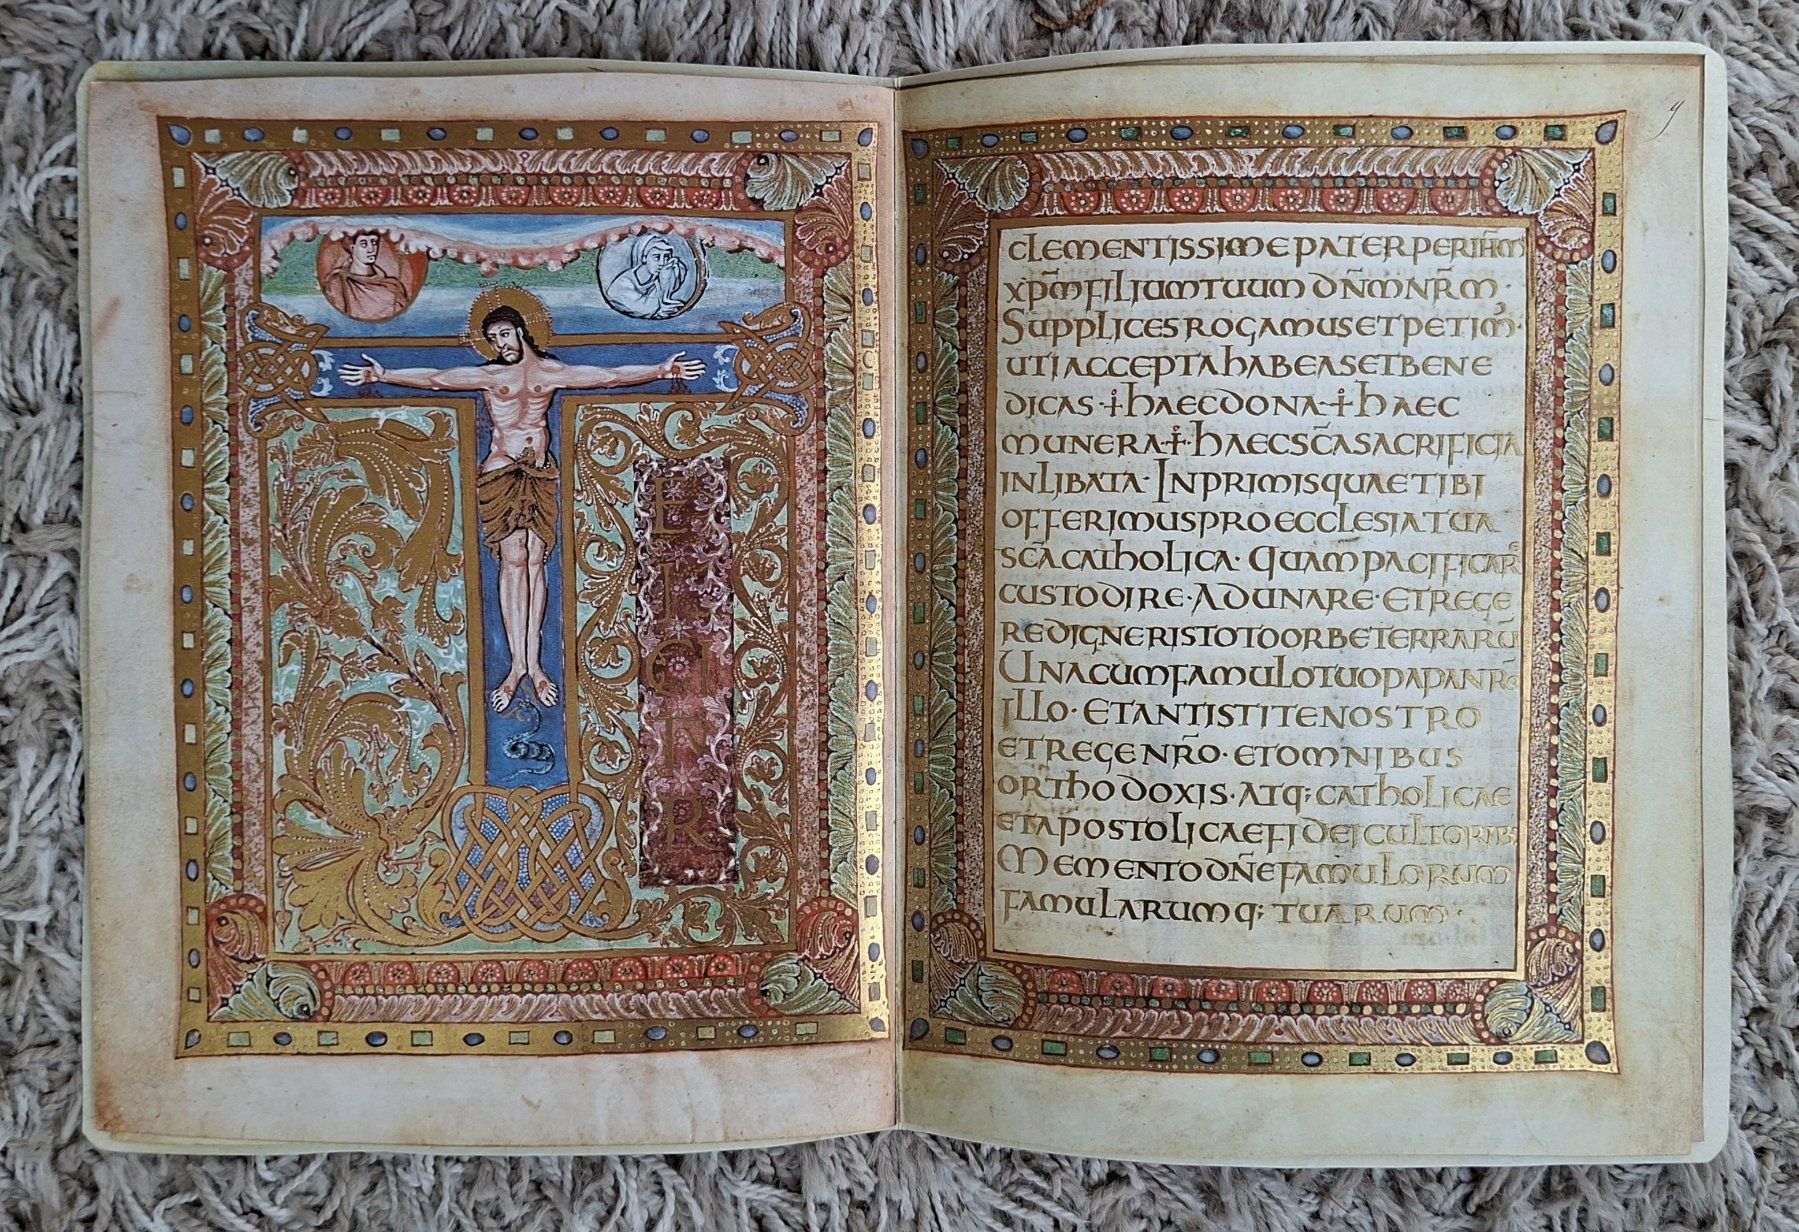 T
E
I
GI
TU
R
CLEMENTISSIME PATER PER IHM̄
XP̄M FILIUM TUUM DN̄M NR̄M·
SUPPLICES ROGAMUS ET PETIM·
UTI ACCEPTA HABEAS ET BENE
DICAS · ☩ HAEC DONA · ☩ HAEC
MUNERA · ☩ HAEC SC̄A SACRIFICIA
INLIBATA · IN PRIMIS QUAE TIBI
OFFERIMUS PRO ECCLESIA TUA
SC̄A CATHOLICA · QUAM PACIFICAR̄
CUSTODIRE · ADUNARE · ET REGE
RE DIGNERIS TOTO ORBE TERRARŪ
UNA CUM FAMULO TUO PAPA NR̄O
ILLO · ET ANTISTITE NOSTRO
ET REGE NR̄O · ET OMNIBUS
ORTHODOXIS · ATQ; CATHOLICAE
ET APOSTOLICAE FIDEI CULTORIB;
MEMENTO DN̄E FAMULORUM
FAMULARUMQ; TUARUM ·